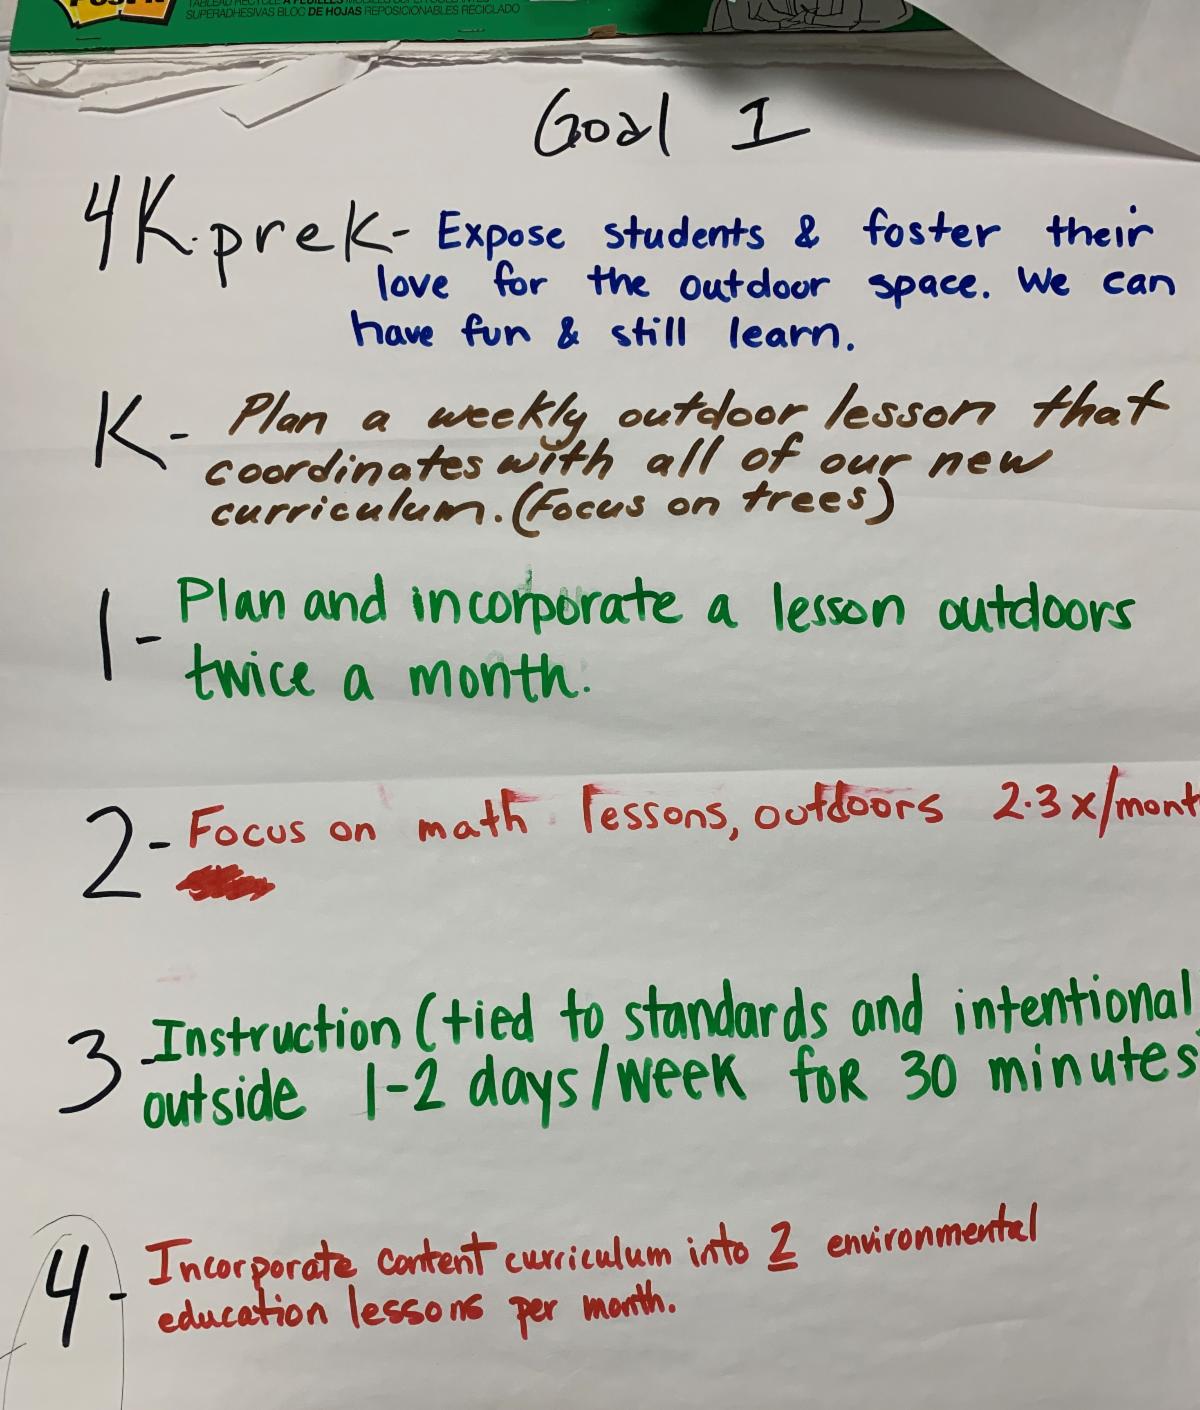 SUPERADHESIVAS BLOC DE HOJAS REPOSICIONABLES RECICLADO
Goal 1
4K.prek- Expose students & foster their
love for the outdoor space. We can
have fun & still learn.
K- Plan a weekly outdoor lesson that
coordinates with all of our new
curriculum. (Focus on trees)
1- Plan and incorporate a lesson outdoors
twice a month.
2- Focus on math lessons, outdoors 2-3x/mont
3 -Instruction (tied to standards and intentional
outside 1-2 days/week for 30 minutes
4- Incorporate content curriculum into 2 environmental
education lessons per month.